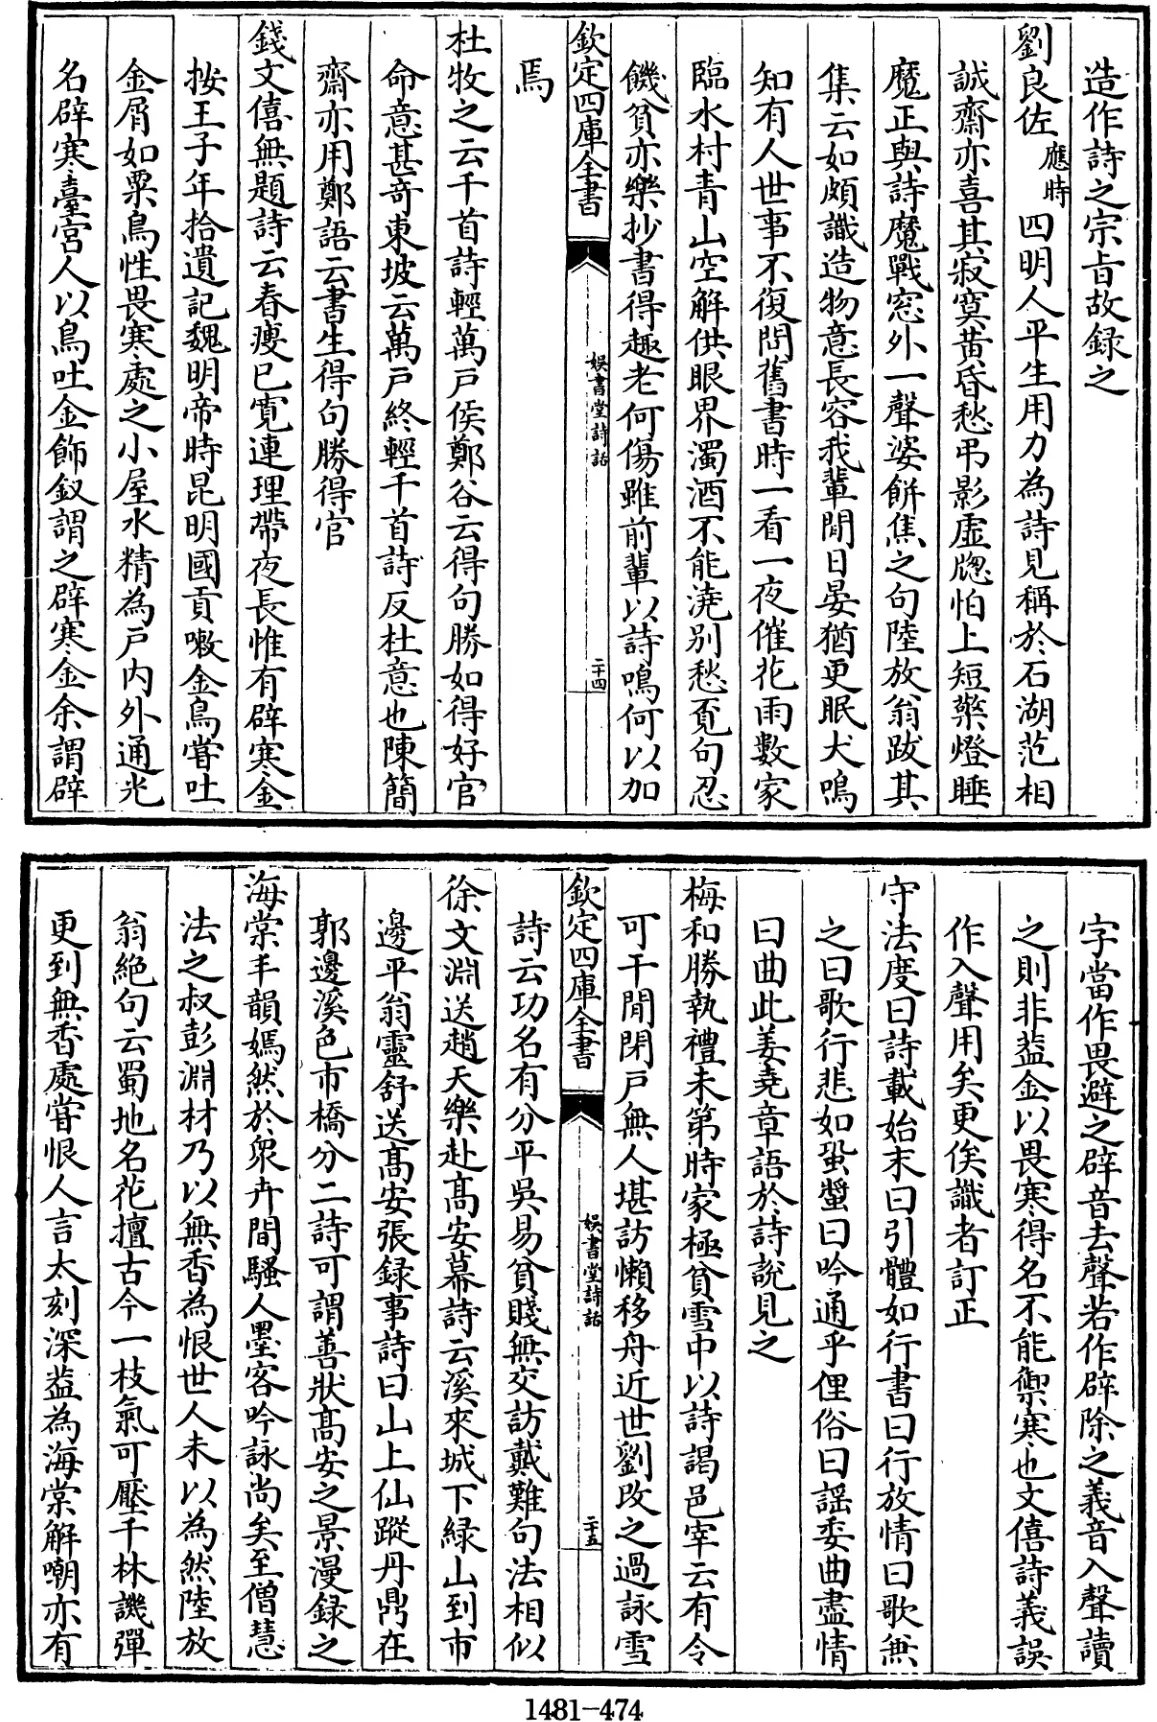 造作詩之宗旨故録之
劉良佐應時四明人平生用力為詩見稱於石湖范相
誠齋亦喜其寂寞黄昏愁弔影虚牕怕上短檠燈睡
魔正與詩魔戰窓外一聲婆餅焦之句陸放翁跋其
集云如頗識造物意長容我輩閒日晏猶更眠犬鳴
知有人世事不復問舊書時一看一夜催花雨數家
臨水村青山空解供眼界濁酒不能澆别愁覔句忍
饑貧亦樂抄書得趣老何傷雖前輩以詩鳴何以加
欽定四庫全書
娯書堂詩話
二十四
焉
杜牧之云千首詩輕萬戸侯鄭谷云得句勝如得好官
命意甚奇東坡云萬戸終輕千首詩反杜意也陳簡
齋亦用鄭語云書生得句勝得官
錢文僖無題詩云春瘦已寛連理帶夜長惟有辟寒金
按王子年拾遺記魏明帝時昆明國貢嗽金鳥嘗吐
金屑如粟鳥性畏寒處之小屋水精為戸内外通光
名辟寒臺宫人以鳥吐金飾釵謂之辟寒金余謂辟
字當作畏避之辟音去聲若作辟除之義音入聲讀
之則非葢金以畏寒得名不能禦寒也文僖詩義誤
作入聲用矣更俟識者訂正
守法度曰詩載始末曰引體如行書曰行放情曰歌兼
之曰歌行悲如蛩螿曰吟通乎俚俗曰謡委曲盡情
曰曲此姜堯章語於詩說見之
梅和勝執禮未第時家極貧雪中以詩謁邑宰云有令
可干閒閉戸無人堪訪懶移舟近世劉改之過詠雪
欽定四庫全書
娯書堂詩話
二十五
詩云功名有分平吳易貧賤無交訪戴難句法相似
徐文淵送趙天樂赴髙安幕詩云溪來城下緑山到市
邊平翁靈舒送髙安張録事詩曰山上仙蹤丹鼎在
郭邊溪色市橋分二詩可謂善狀髙安之景漫録之
海棠丰韻嫣然於衆卉間騷人墨客吟詠尚矣至僧慧
法之叔彭淵材乃以無香為恨世人未以為然陸放
翁絶句云蜀地名花擅古今一枝氣可壓千林譏彈
更到無香處嘗恨人言太刻深葢為海棠解嘲亦有
1481-474